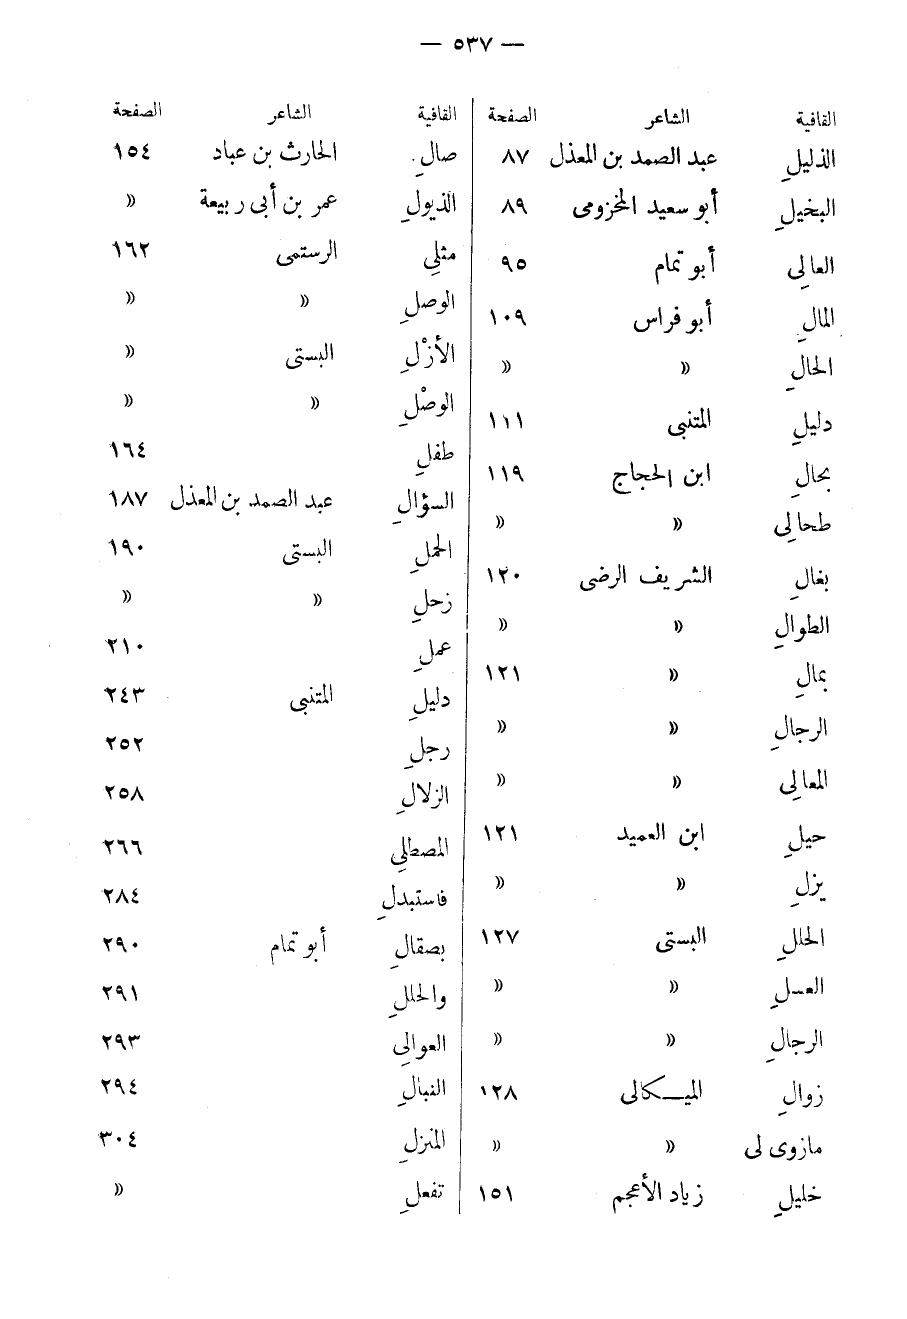 — ٥٣٧ —
القافية الشاعر الصفحة
الذليلِ عبد الصمد بن المعذل ٨٧
البخيلِ أبو سعيد المخزومى ٨٩
العالِى أبو تمام ٩٥
المالِ أبو فراس ١٠٩
الحالِ » »
دليلِ المتنبى ١١١
بحالِ ابن الحجاج ١١٩
طحالِى » »
بغالِ الشريف الرضى ١٢٠
الطوالِ » »
بمالِ » ١٢١
الرجالِ » »
المعالِى » »
حيلِ ابن العميد ١٢١
يزلِ » »
الحللِ البستى ١٢٧
العسلِ » »
الرجالِ » »
زوالِ الميـكالى ١٢٨
مازوى لى » »
خليلِ زياد الأعجم ١٥١
القافية الشاعر الصفحة
صالِ الحارث بن عباد ١٥٤
الذيولِ عمر بن أبى ربيعة »
مثلِى الرستمى ١٦٢
الوصلِ » »
الأزْلِ البستى »
الوصْلِ » »
طفلِ ١٦٤
السؤالِ عبد الصمد بن المعذل ١٨٧
الحملِ البستى ١٩٠
زحلِ » »
عملِ ٢١٠
دليلِ المتنبى ٢٤٣
رجلِ ٢٥٢
الزلالِ ٢٥٨
المصطلِى ٢٦٦
فاستبدلِ ٢٨٤
بصقالِ أبو تمام ٢٩٠
والحللِ ٢٩١
العوالِى ٢٩٣
النبالِ ٢٩٤
المنزلِ ٣٠٤
تفعلِ »